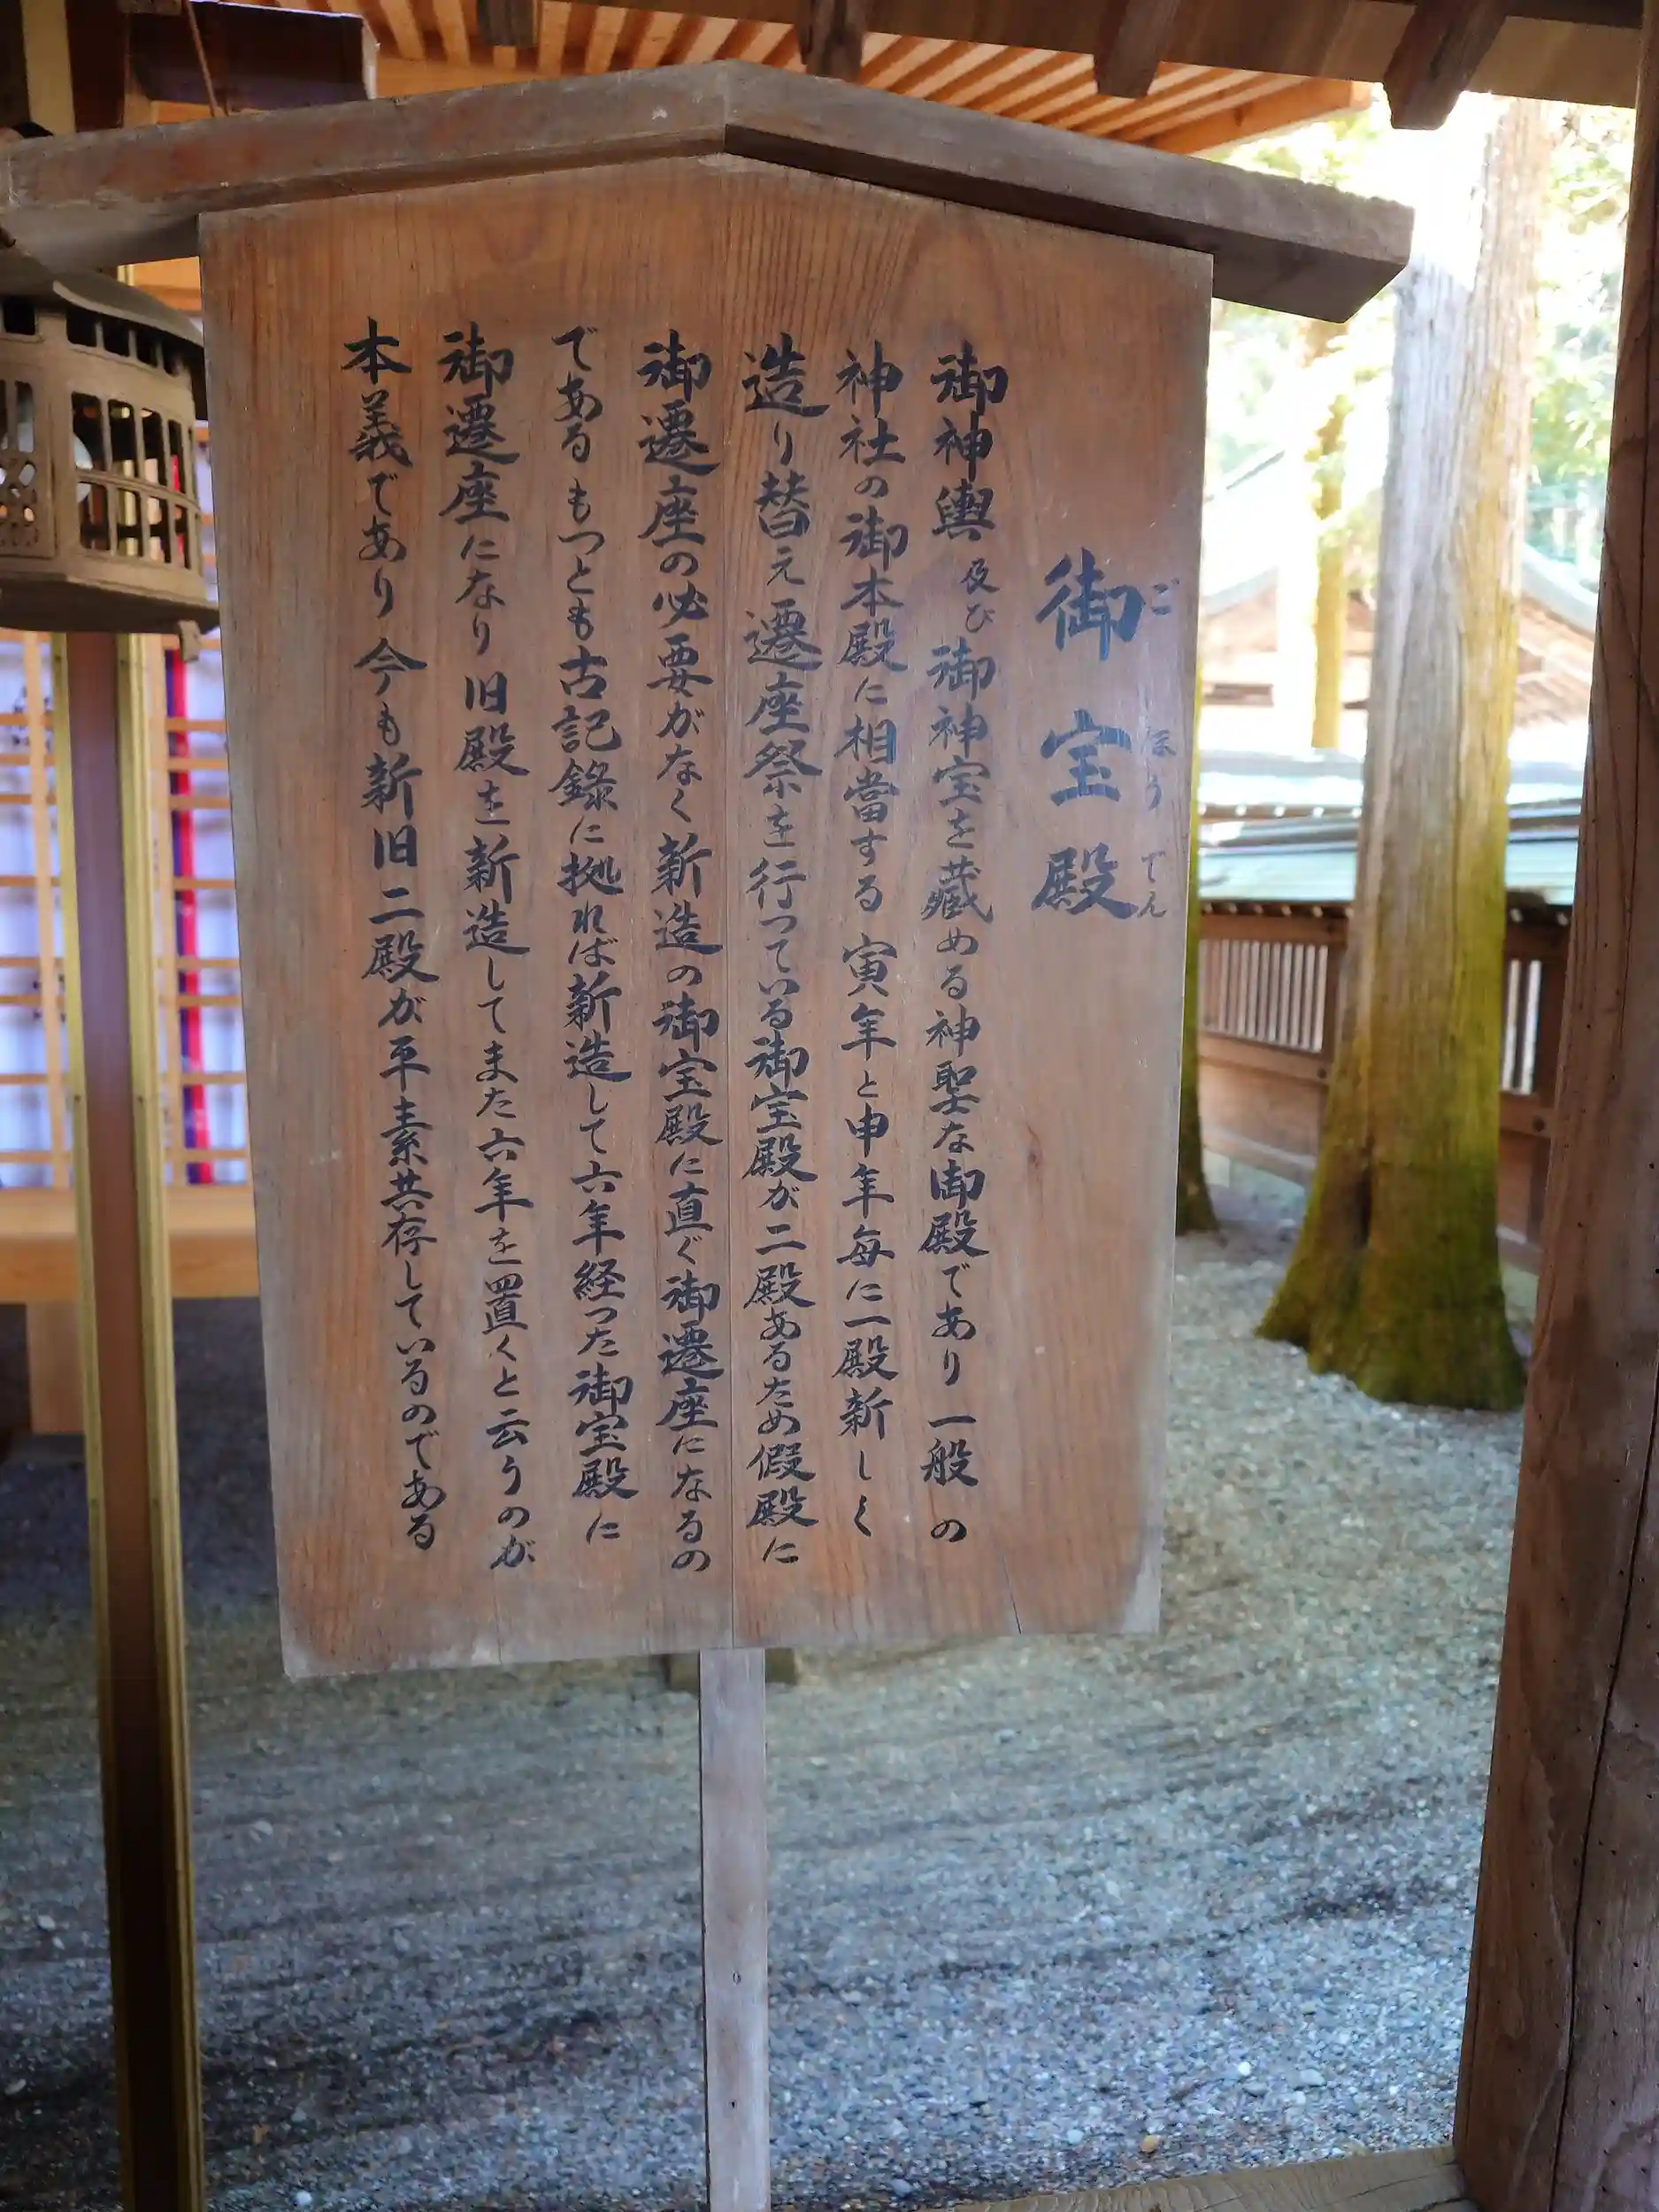 御宝殿
ごほうでん
御神輿及び御神宝を藏める神聖な御殿であり一般の
神社の御本殿に相當する 寅年と申年毎に一殿新しく
造り替え遷座祭を行つている御宝殿が二殿あるため假殿に
御遷座の必要がなく新造の御宝殿に直ぐ御遷座になるの
である もつとも古記錄に拠れば新造して六年経つた御宝殿に
御遷座になり旧殿を新造してまた六年を置くと云うのが
本義であり今も新旧二殿が平素共存しているのである